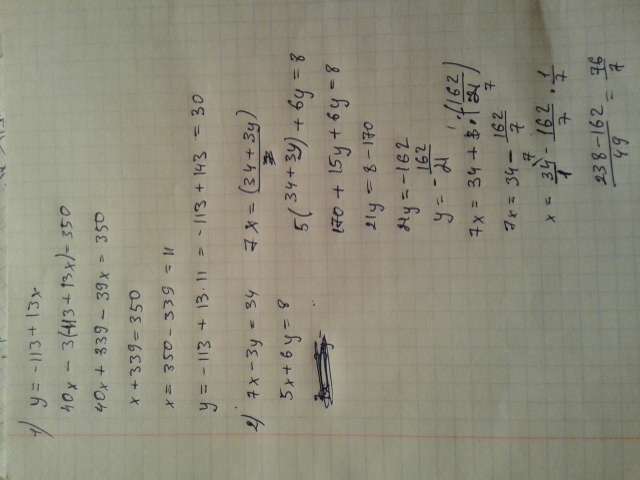 1) y = -113 + 13x
40x - 3(-113 + 13x) = 350
40x + 339 - 39x = 350
x + 339 = 350
x = 350 - 339 = 11
y = -113 + 13·11 = -113 + 143 = 30
2) 7x - 3y = 34
5x + 6y = 8
7x = (34 + 3y)
5(34 + 3y) + 6y = 8
170 + 15y + 6y = 8
21y = 8 - 170
21y = -162
y = -162/21
7x = 34 + 3·(162/21) 7
7x = 34 - 162/7
x = 34/1 - 162/7 · 1/7
238 - 162/49 = 76/7